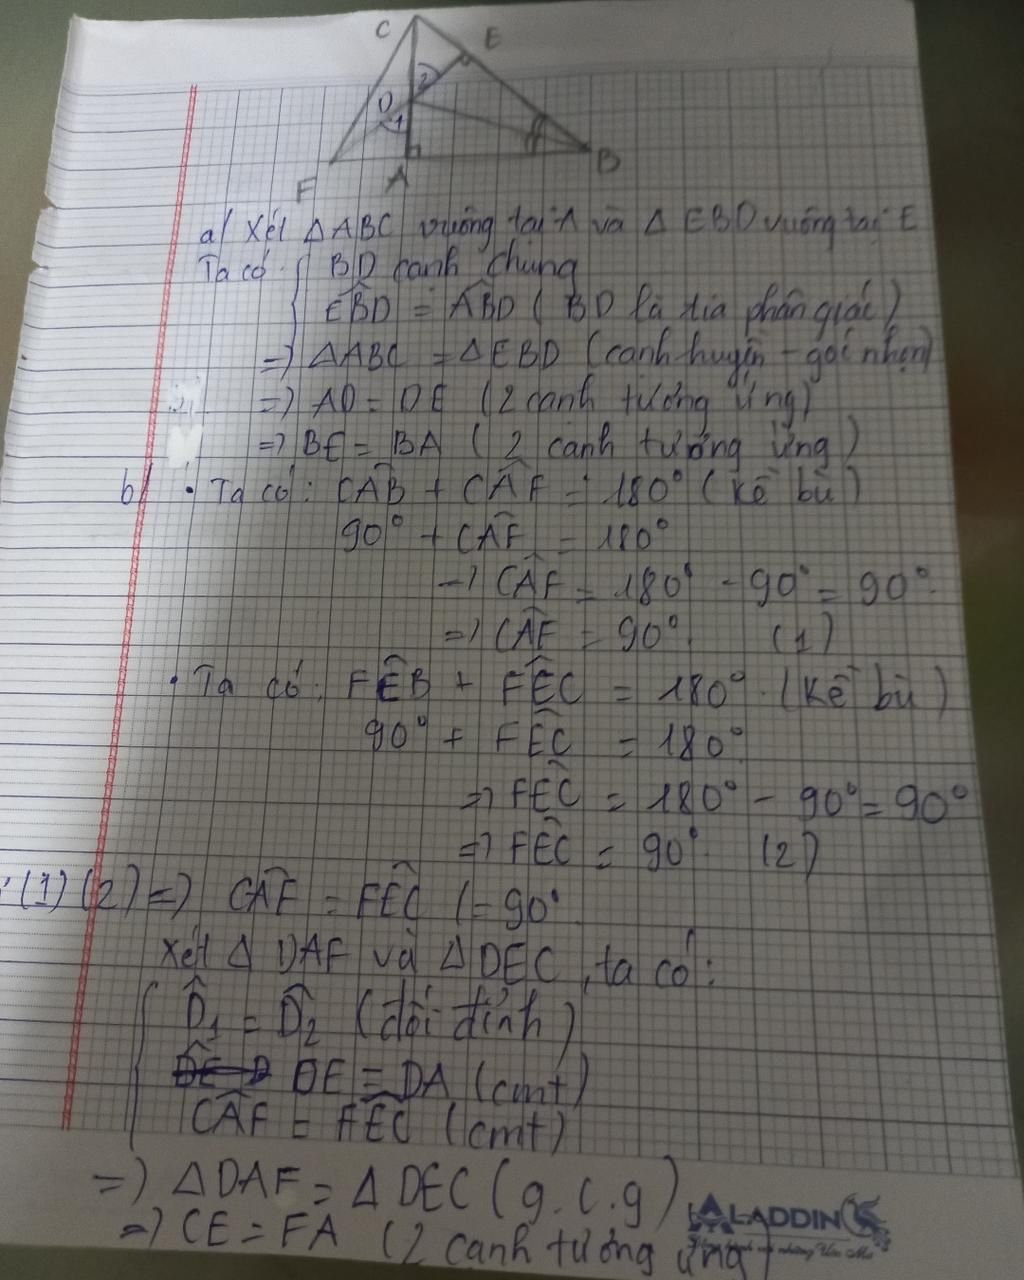 C
E
2
D
1
F
A
B
a/ Xét ΔABC vuông tại A và Δ EBD vuông tại E
Ta có: { BD cạnh chung
EB̂D = AB̂D ( BD là tia phân giác )
=> ΔABC = ΔEBD (cạnh huyền - góc nhọn)
=> AD = DE (2 cạnh tương ứng)
=> BE = BA ( 2 cạnh tương ứng )
b/ • Ta có: CÂB + CÂF = 180° ( Kề bù )
90° + CÂF = 180°
=> CÂF = 180° - 90° = 90°
=> CÂF = 90° (1)
• Ta có: FÊB + FÊC = 180° (Kề bù )
90° + FÊC = 180°
=> FÊC = 180° - 90° = 90°
=> FÊC = 90° (2)
(1) (2) => CÂF = FÊC (= 90°
Xét Δ DAF và Δ DEC, ta có:
D̂1 = D̂2 (đối đỉnh)
DE = DA (cmt)
CÂF = FÊC (cmt)
=> Δ DAF = Δ DEC ( g.c.g )
=> CE = FA (2 cạnh tương ứng)
ALADDIN